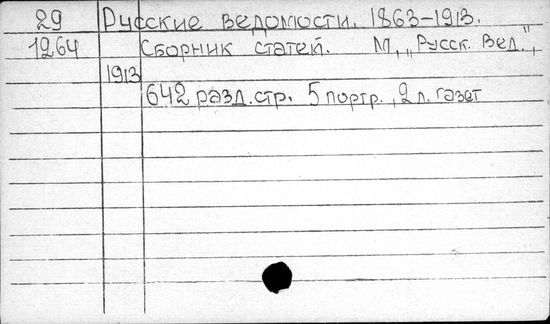 29 Русские ведомости. 1863-1913.
1264 Сборник статей. М., „Русск. Вед.",
1913
642 разд. стр. 5 портр., 2 л. газет